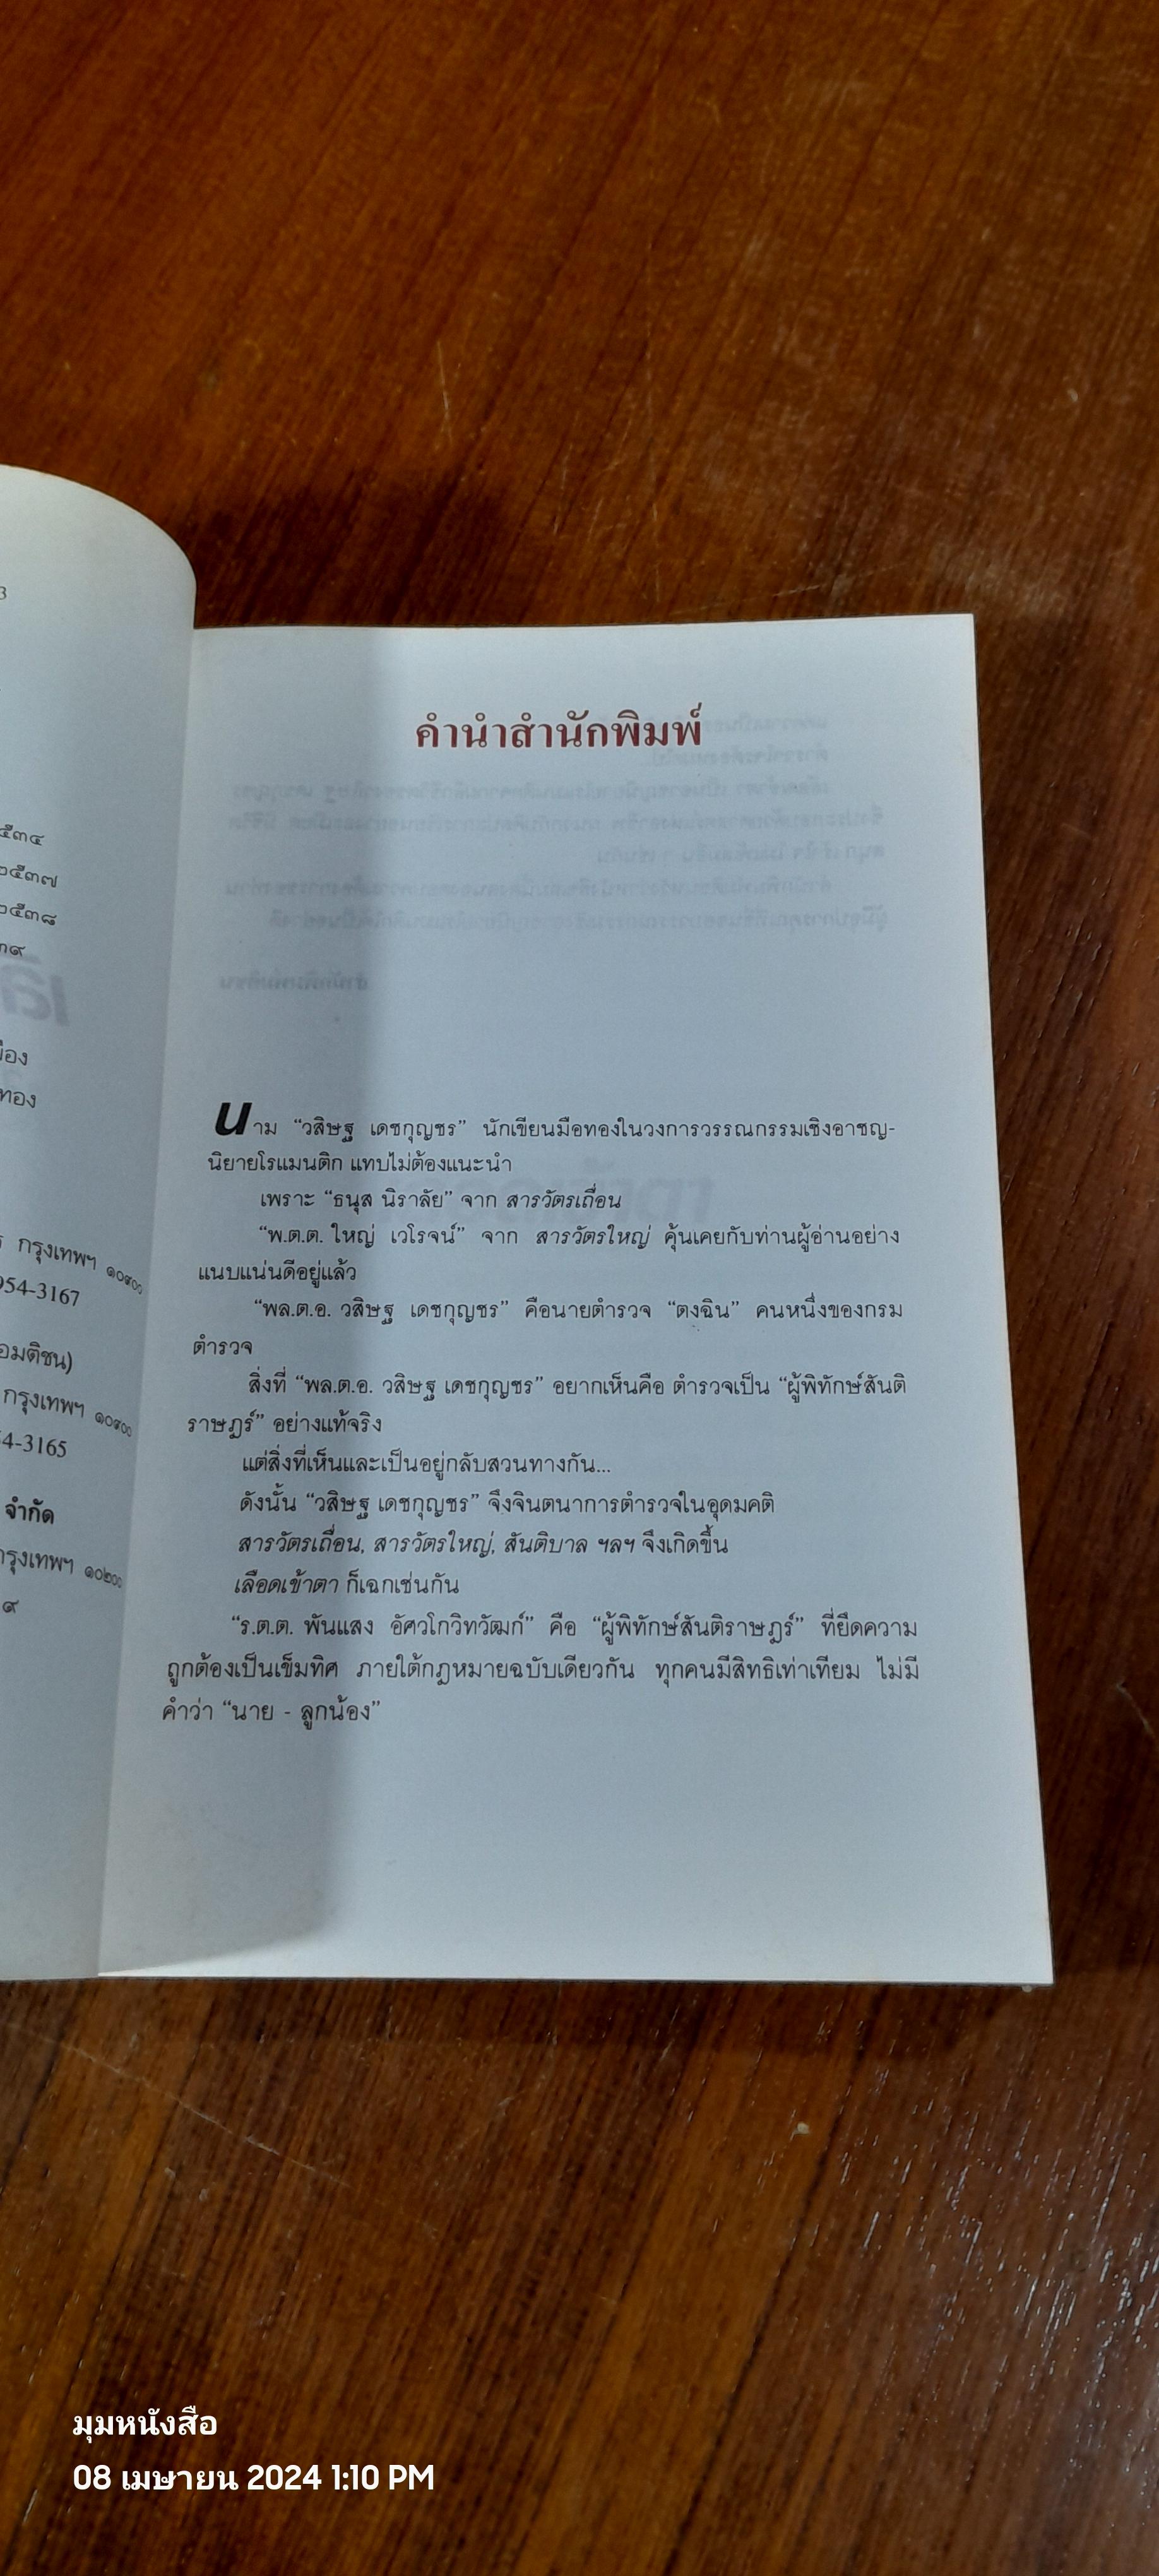 3
๕๓๔
๒๕๓๗
๒๕๓๘
๓๙
เมือง
ทอง
กรุงเทพฯ ๑๐๙๐๐
954-3167
มติชน)
กรุงเทพฯ ๑๐๙๐๐
4-3165
จำกัด
กรุงเทพฯ ๑๐๒๐๐
๙
คำนำสำนักพิมพ์
นาม “วสิษฐ เดชกุญชร” นักเขียนมือทองในวงการวรรณกรรมเชิงอาชญ-
นิยายโรแมนติก แทบไม่ต้องแนะนำ
เพราะ “ธนุส นิราลัย” จาก สารวัตรเถื่อน
“พ.ต.ต. ใหญ่ เวโรจน์” จาก สารวัตรใหญ่ คุ้นเคยกับท่านผู้อ่านอย่าง
แนบแน่นดีอยู่แล้ว
“พล.ต.อ. วสิษฐ เดชกุญชร” คือนายตำรวจ “ตงฉิน” คนหนึ่งของกรม
ตำรวจ
สิ่งที่ “พล.ต.อ. วสิษฐ เดชกุญชร” อยากเห็นคือ ตำรวจเป็น “ผู้พิทักษ์สันติ
ราษฎร์” อย่างแท้จริง
แต่สิ่งที่เห็นและเป็นอยู่กลับสวนทางกัน...
ดังนั้น “วสิษฐ เดชกุญชร” จึงจินตนาการตำรวจในอุดมคติ
สารวัตรเถื่อน, สารวัตรใหญ่, สันติบาล ฯลฯ จึงเกิดขึ้น
เลือดเข้าตา ก็เฉกเช่นกัน
“ร.ต.ต. พันแสง อัศวโกวิทวัฒก์” คือ “ผู้พิทักษ์สันติราษฎร์” ที่ยึดความ
ถูกต้องเป็นเข็มทิศ ภายใต้กฎหมายฉบับเดียวกัน ทุกคนมีสิทธิเท่าเทียม ไม่มี
คำว่า “นาย - ลูกน้อง”
มุมหนังสือ
08 เมษายน 2024 1:10 PM